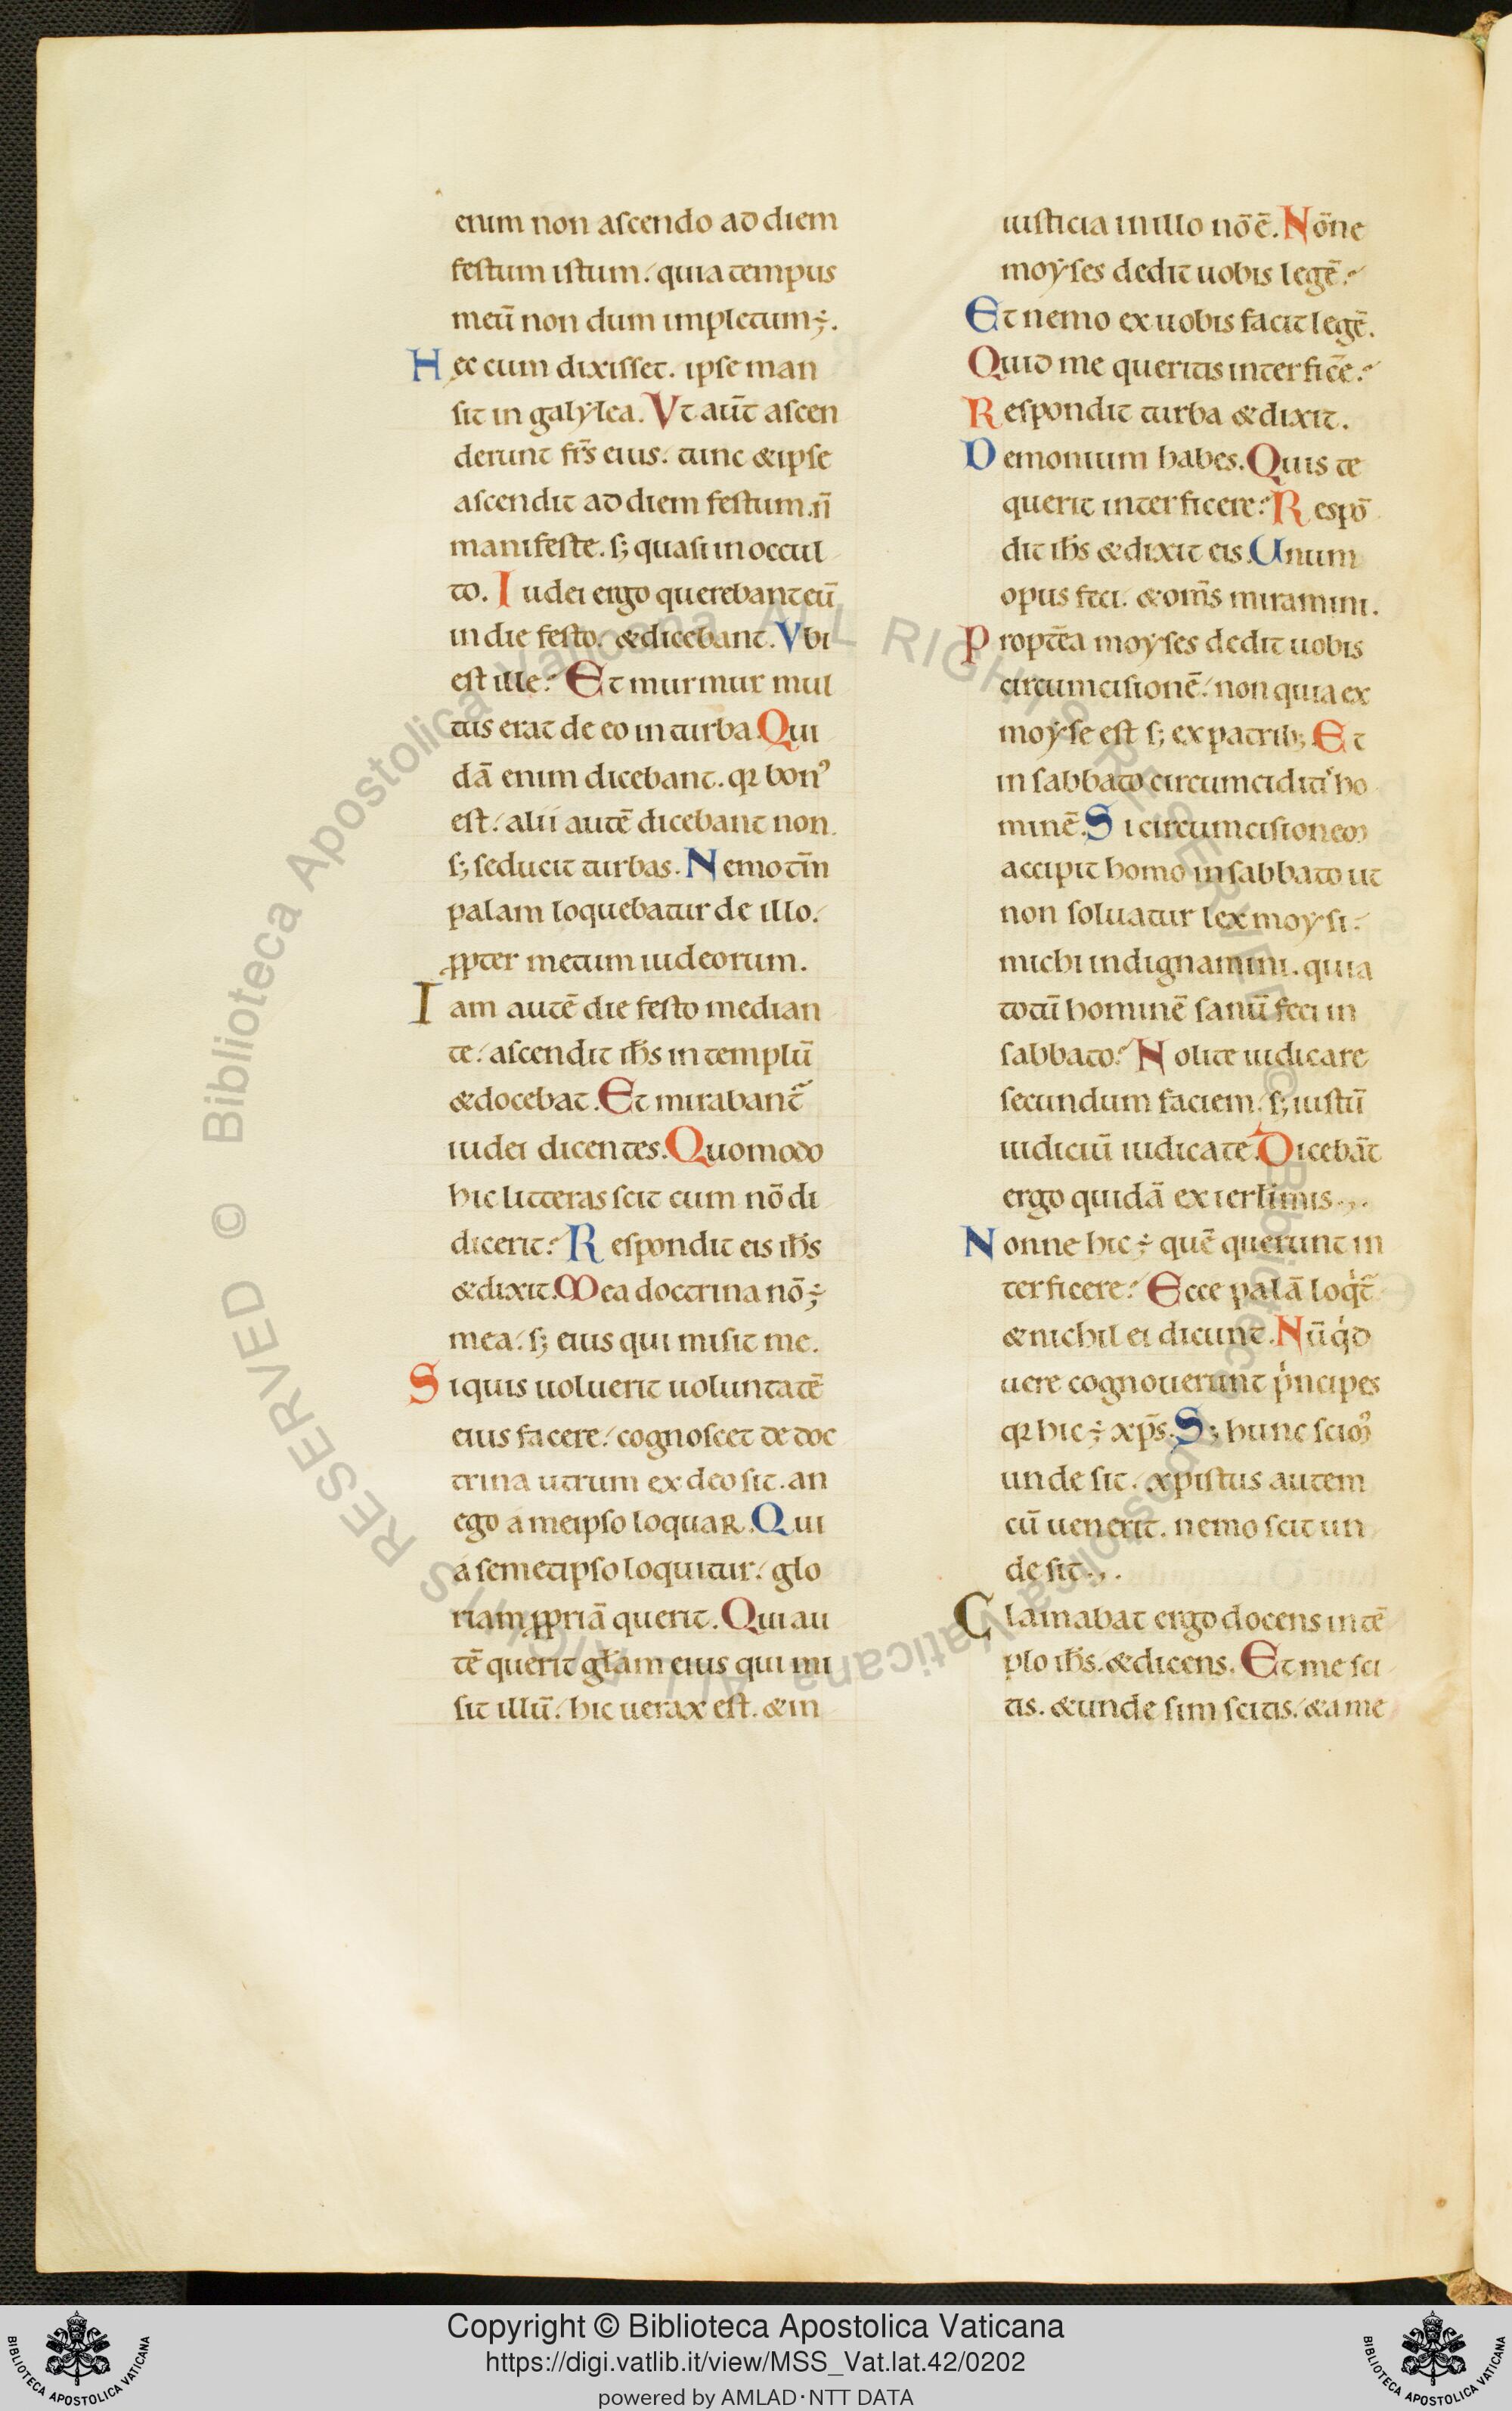 enim non ascendo ad diem
festum istum. quia tempus
meū non dum impletum ÷.
Hęc cum dixisset. ipse man
sit in galylea. Vt aūt ascen
derunt fr̄s eius. tunc & ipse
ascendit ad diem festum. n̄
manifeste. s; quasi in occul
to. Iudei ergo querebant eū
in die festo. & dicebant. Vbi
est ille? Et murmur mul
tus erat de eo in turba. Qui
dā enim dicebant. qꝛ bonꝰ
est. alii autē dicebant non.
s; seducit turbas. Nemo tm̄
palam loquebatur de illo.
ꝓpter metum iudeorum.
Iam autē die festo median
te. ascendit ih̄s in templū
& docebat. Et mirabant᷑
iudei dicentes. Quomodo
hic litteras scit cum nō di
dicerit? Respondit eis ih̄s
& dixit. Mea doctrina nō ÷
mea. s; eius qui misit me.
Siquis uoluerit uoluntatē
eius facere. cognoscet de doc
trina utrum ex deo sit. an
ego a meipso loquar. Qui
a semetipso loquitur. glo
riam ꝓpriā querit. Qui au
tē querit gl̄am eius qui mi
sit illū. hic uerax est. & in
iusticia in illo nō ē. Nōne
moyses dedit uobis legē?
Et nemo ex uobis facit legē.
Quid me queritis interfic̄e?
Respondit turba & dixit.
Demonium habes. Quis te
querit interficere? Respō
dit ih̄s & dixit eis. Unum
opus feci. & om̄s miramini.
Propt̄ea moyses dedit uobis
circumcisionē. non quia ex
moyse est s; ex patrib; Et
in sabbato circumciditis ho
minē. Si circumcisionem
accipit homo in sabbato ut
non soluatur lex moysi.
michi indignamini. quia
totū hominē sanū feci in
sabbato? Nolite iudicare
secundum faciem. s; iustū
iudiciū iudicate. Dicebāt
ergo quidā ex ierl̄imis.
Nonne hic ÷ quē querunt in
terficere? Ecce palā loqͥt᷑
& nichil ei dicunt. Nūqͥd
uere cognouerunt pͥncipes
qꝛ hic ÷ xp̄s. S; hunc scimꝰ
unde sit. xpistus autem
cū uenerit. nemo scit un
de sit.
Clamabat ergo docens in tē
plo ih̄s. & dicens. Et me sci
tis. & unde sim scitis. & a me
Copyright © Biblioteca Apostolica Vaticana
https://digi.vatlib.it/view/MSS_Vat.lat.42/0202
powered by AMLAD·NTT DATA
BIBLIOTECA APOSTOLICA VATICANA
BIBLIOTECA APOSTOLICA VATICANA
© Biblioteca Apostolica Vaticana ALL RIGHTS RESERVED © Biblioteca Apostolica Vaticana ALL RIGHTS RESERVED